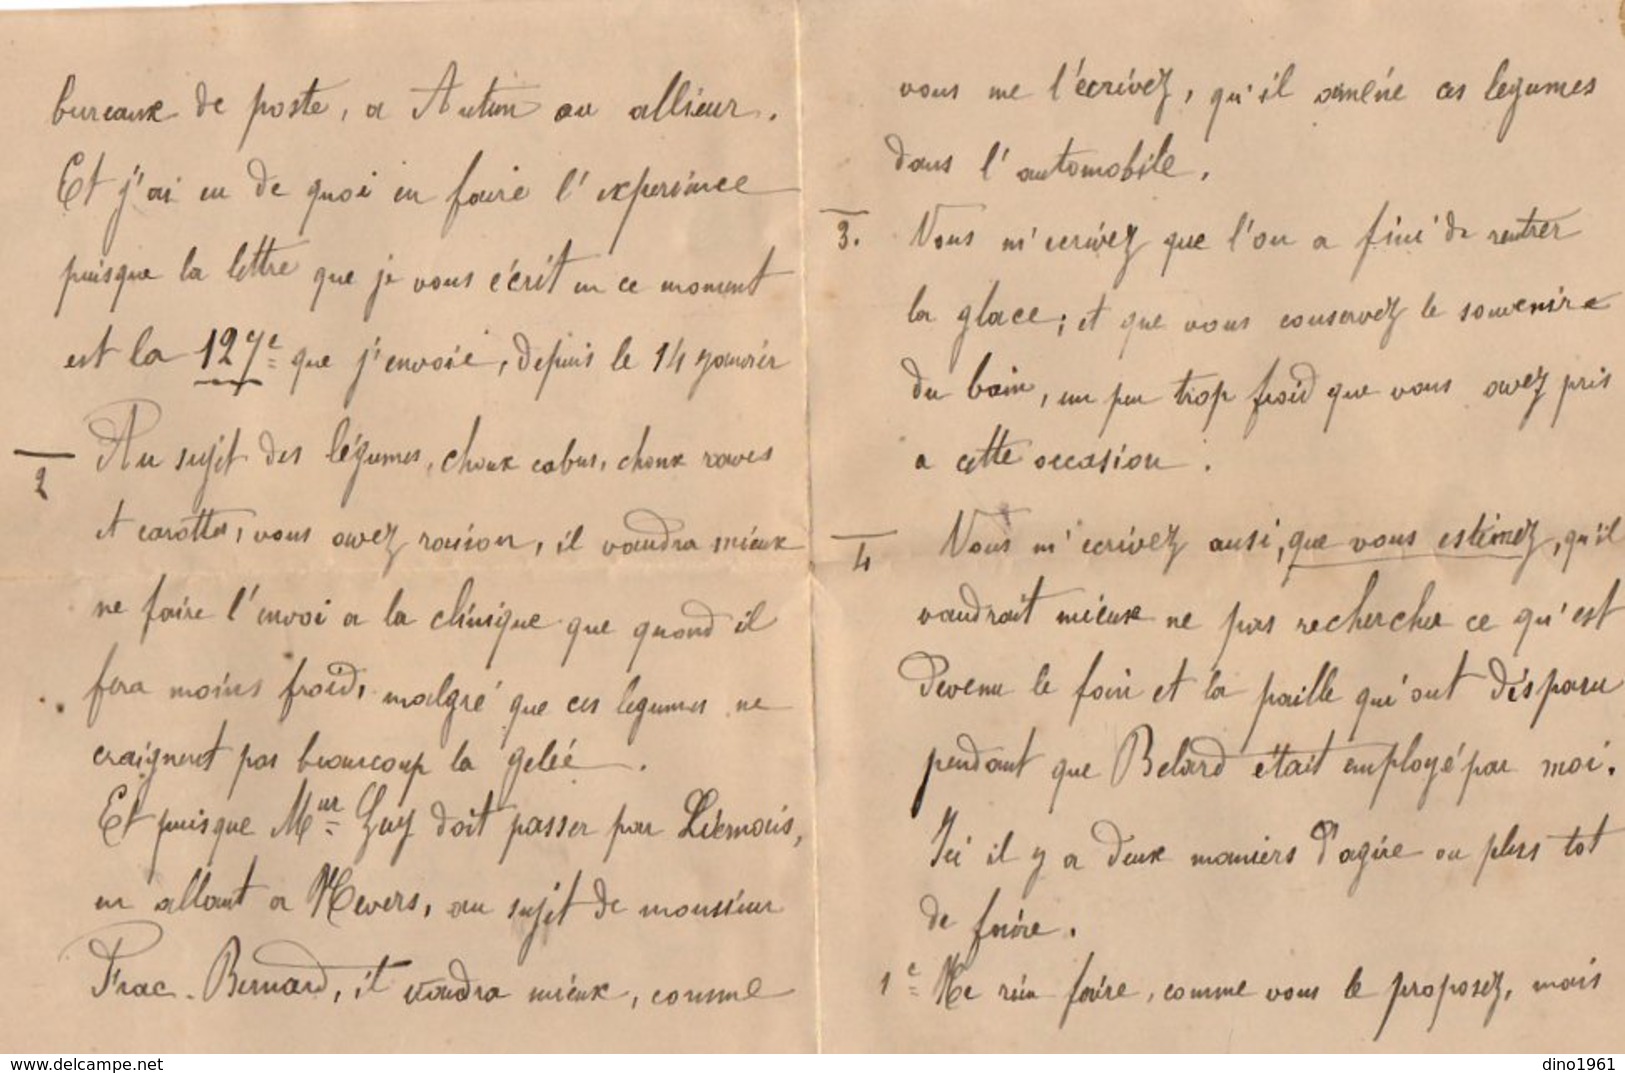 bureaux de poste, a Autun ou allieur.
Et j'ai eu de quoi en faire l'experience
puisque la lettre que je vous écrit en ce moment
est la 127e que j'envoie, depuis le 14 janvier
2 Au sujet des légumes, choux cabus, choux raves
et carottes, vous avez raison, il vaudra mieux
ne faire l'envoi a la clinique que quand il
fera moins froid, malgré que ces legumes ne
craignent pas beaucoup la gelée.
Et puisque Mur Guy doit passer par Liernais,
en allant a Nevers, au sujet de monsieur
Frac. Bernard, il vaudra mieux, comme
vous me l'écrivez, qu'il amène ces legumes
dans l'automobile.
3. Vous m'ecrivez que l'on a fini de rentrer
la glace; et que vous conservez le souvenire
du bain, un peu trop froid que vous avez pris
a cette occasion.
4 Vous m'ecrivez ausi, que vous estimez, qu'il
vaudrait mieux ne pas rechercher ce qu'est
devenu le foin et la paille qu'ont disparu
pendant que Belard était employé par moi.
Ici il y a deux maniers d'agire ou plus tot
de faire.
1e Ne rien faire, comme vous le proposez, mais
www.delcampe.net
dino1961